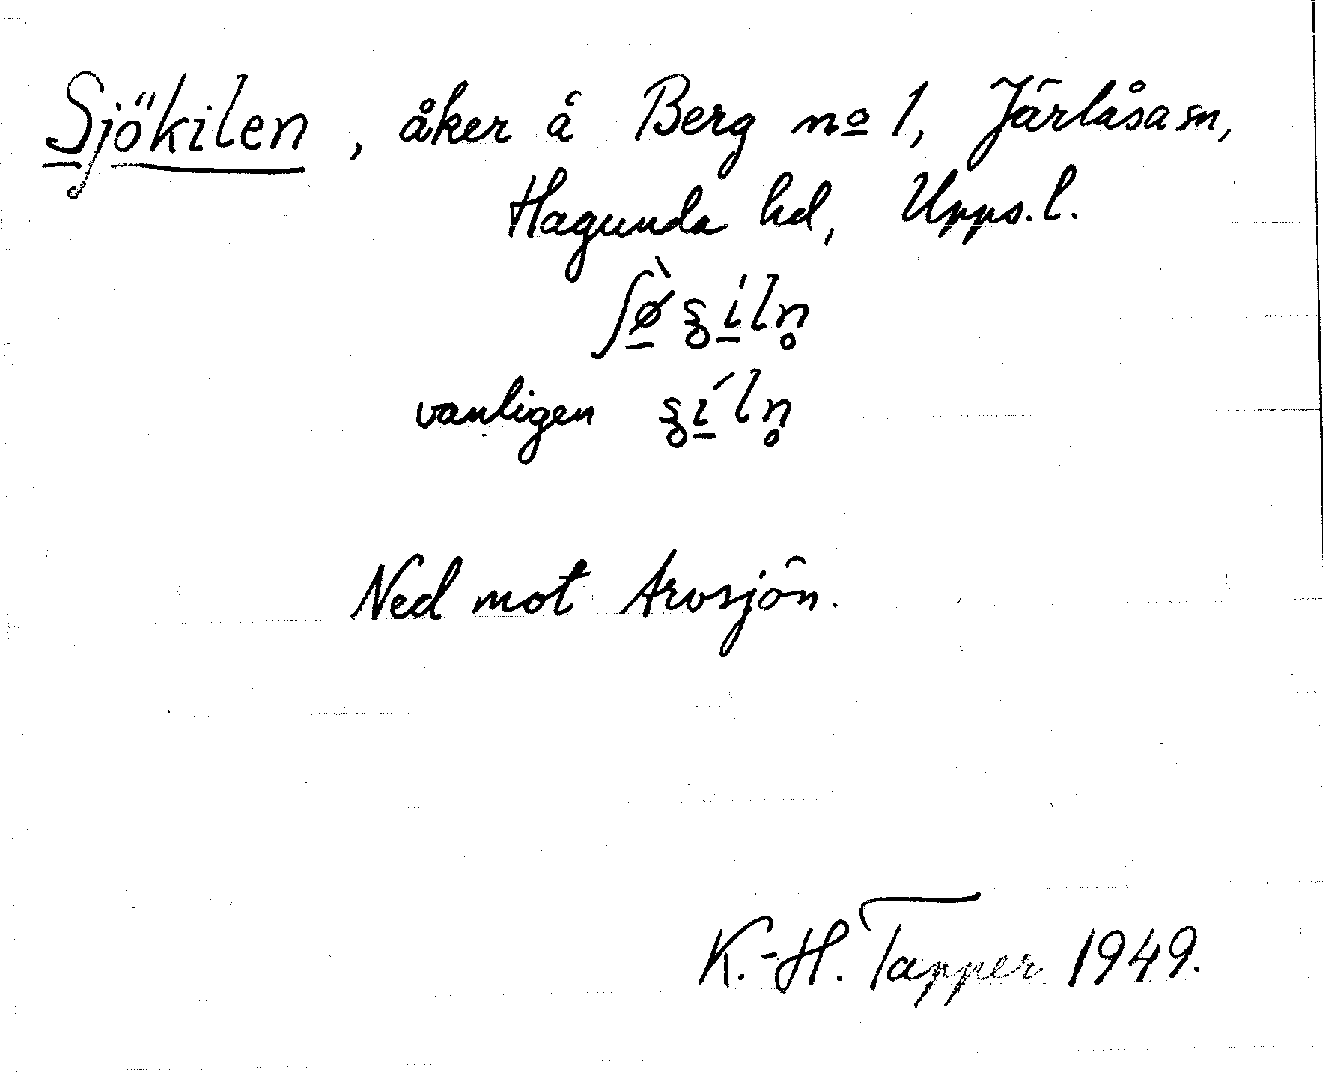 Sjökilen, åker å Berg no 1, Järlåsa sn,
Hagunda hd, Upps.l.
vanligen
Ned mot Arosjön.
K.-H. Tapper 1949.